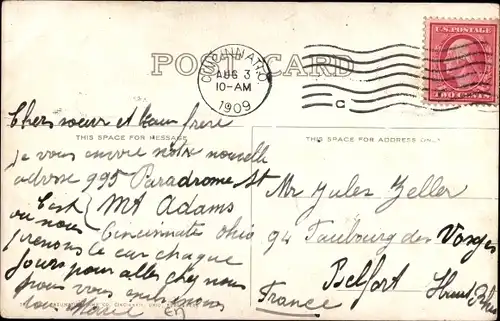 POST CARD
CINCINNATI, O.
AUG 3
10-AM
1909
C
U.S. POSTAGE
TWO CENTS
THIS SPACE FOR MESSAGE
THIS SPACE FOR ADDRESS ONLY
Chers soeur et beau frere
je vous envoie notre nouvelle
adresse 995 Paradrome St
Mt Adams
Cincinnati Ohio
C'est
ou nous
prenons le car chaque
jours pour aller chez nous
nous vous
tous Marie
Mr Jules Zeller
94 Faubourg des Vosges
Belfort Haut Rhin
France